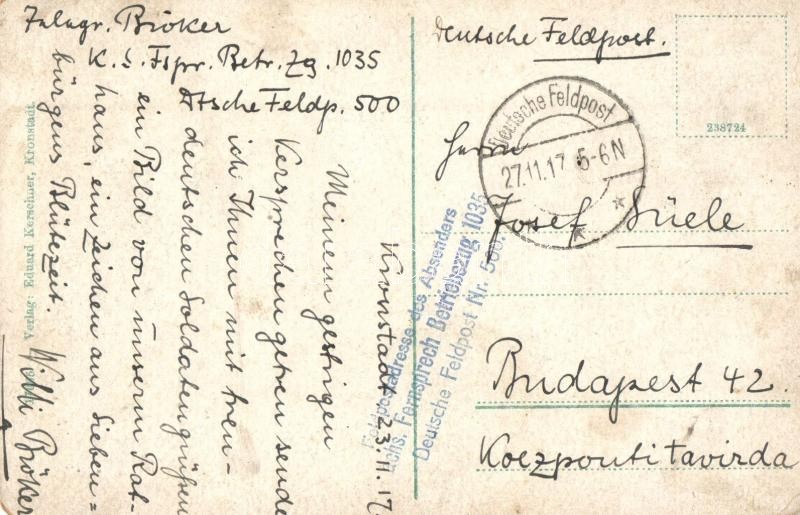 Telegr. Bröker
K. S. Fspr. Betr. Zg. 1035
Dtsche Feldp. 500
Kronstadt 23.11.17.
Meinem gestrigen
Versprechen getreu sende
ich Ihnen mit treu-
deutschen Soldatengrüßen
ein Bild von unserm Rat-
haus, ein Zeichen aus Sieben=
bürgens Blütezeit.
Willi Bröker
Verlag: Eduard Kerschner, Kronstadt.
Feldpostadresse des Absenders
Sächs. Fernsprech Betriebszug 1035
Deutsche Feldpost Nr. 500.
Deutsche Feldpost.
238724
Deutsche Feldpost
27.11.17 5-6N
Herrn
Josef Süele
Budapest 42.
Koezponti tavirda